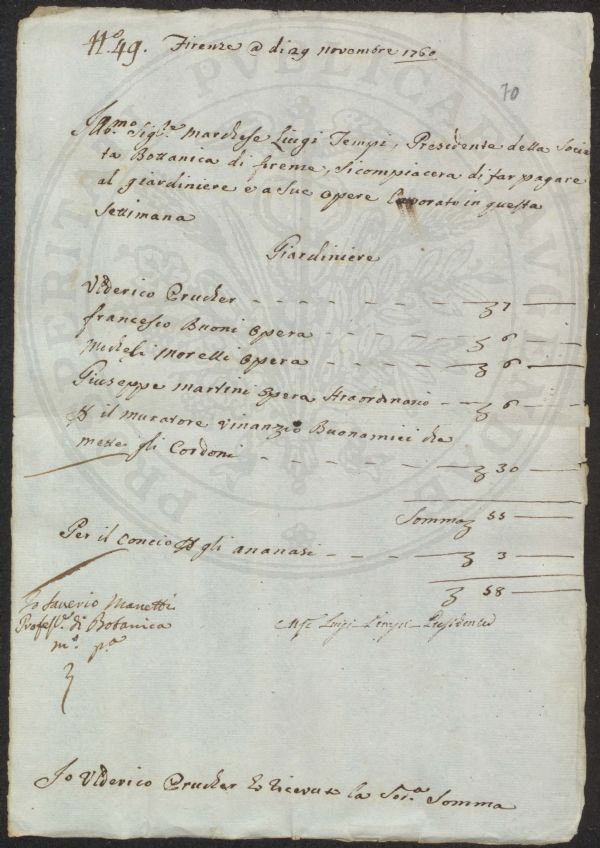 N.o 49. Firenze @ di 29 novembre 1760
70
Ill.mo Sig.re Marchese Luigi Tempi, Presidente della Socie
ta Bottanica di firenze, si compiacera di far pagare
al giardiniere e a sue opere lavorato in questa
Settimana
Giardiniere
Ulderico Prucker - - - - - - - 7 —
francesco Buoni opera - - - - - 6 —
Micheli Morelli opera - - - - - 6 —
Giuseppe Martini opera straordinario - - 6 —
il muratore vinanzio Buonamici che
messe gli Cordoni - - - - - - 30 —
Somma 55 —
Per il Concio gli ananasi - - - - 3 —
58 —
Io Saverio Manetti
Profess.e di Botanica
m.o p.a
Luigi Tempi Presidente
Io Ulderico Prucker ho ricevuto la Sud.a Somma